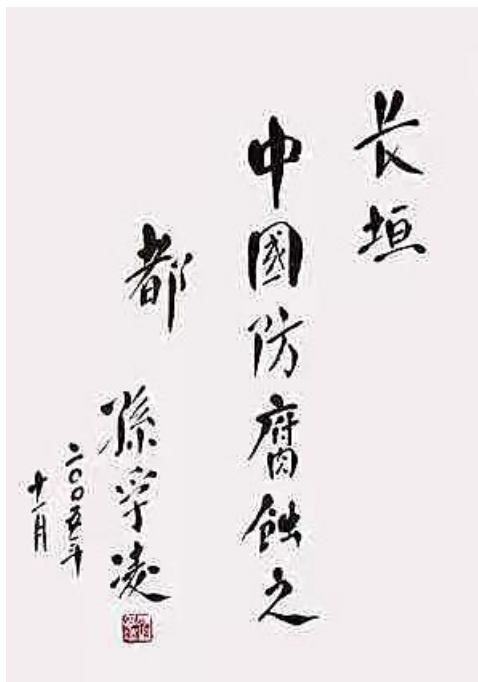 长垣
中國防腐蚀之
都
孫宇凌
二〇〇五年
十一月